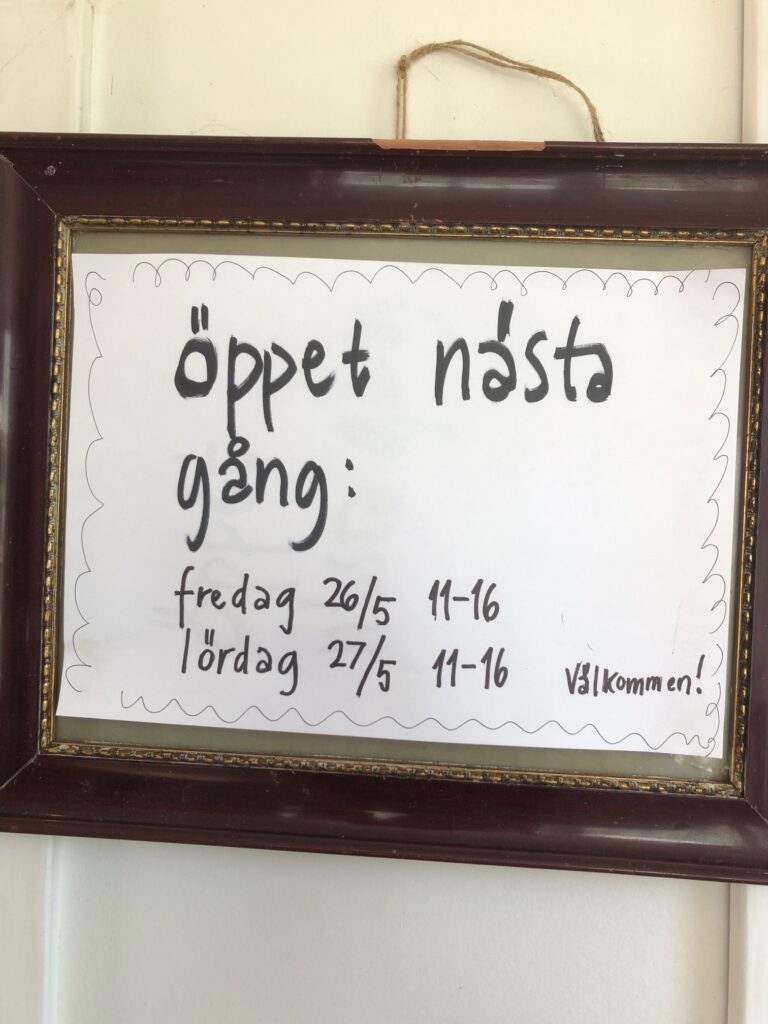 öppet nästa
gång:
fredag 26/5 11-16
lördag 27/5 11-16 Välkommen!